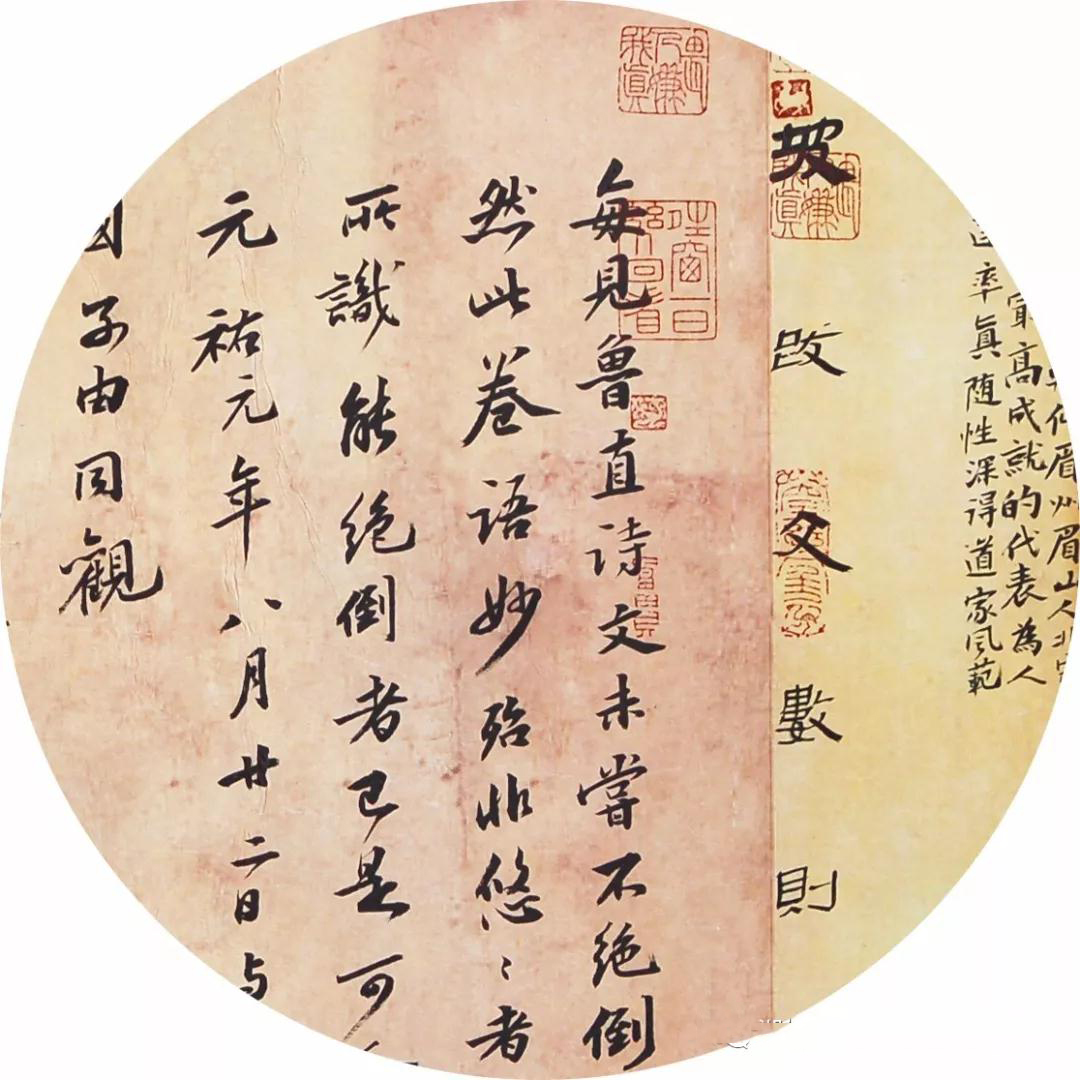 眉州眉山人北
最高成就的代表為人
率真随性深得道家风範
坡跋文數則
每見魯直詩文未嘗不絕倒
然此卷語妙殆非悠〻者
所識能絕倒者已是可
元祐元年八月廿二日与
國子由同觀